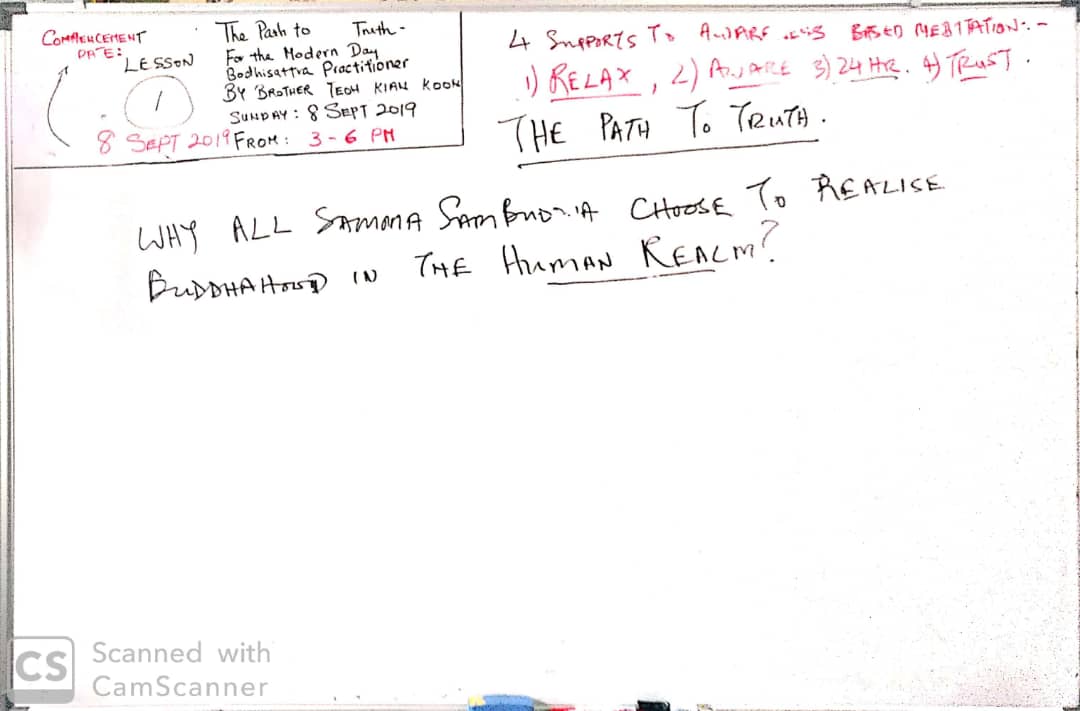 COMMENCEMENT
DATE:
LESSON
1
8 SEPT 2019
The Path to Truth -
For the Modern Day
Bodhisattva Practitioner
BY BROTHER TEOH KIAN KOON
SUNDAY : 8 SEPT 2019
FROM : 3 - 6 PM
4 SUPPORTS TO AWARENESS BASED MEDITATION: -
1) RELAX , 2) AWARE 3) 24 HR. 4) TRUST .
THE PATH TO TRUTH .
WHY ALL SAMMA SAMBUDDHA CHOOSE TO REALISE
BUDDHAHOOD IN THE HUMAN REALM?
CS Scanned with
CamScanner